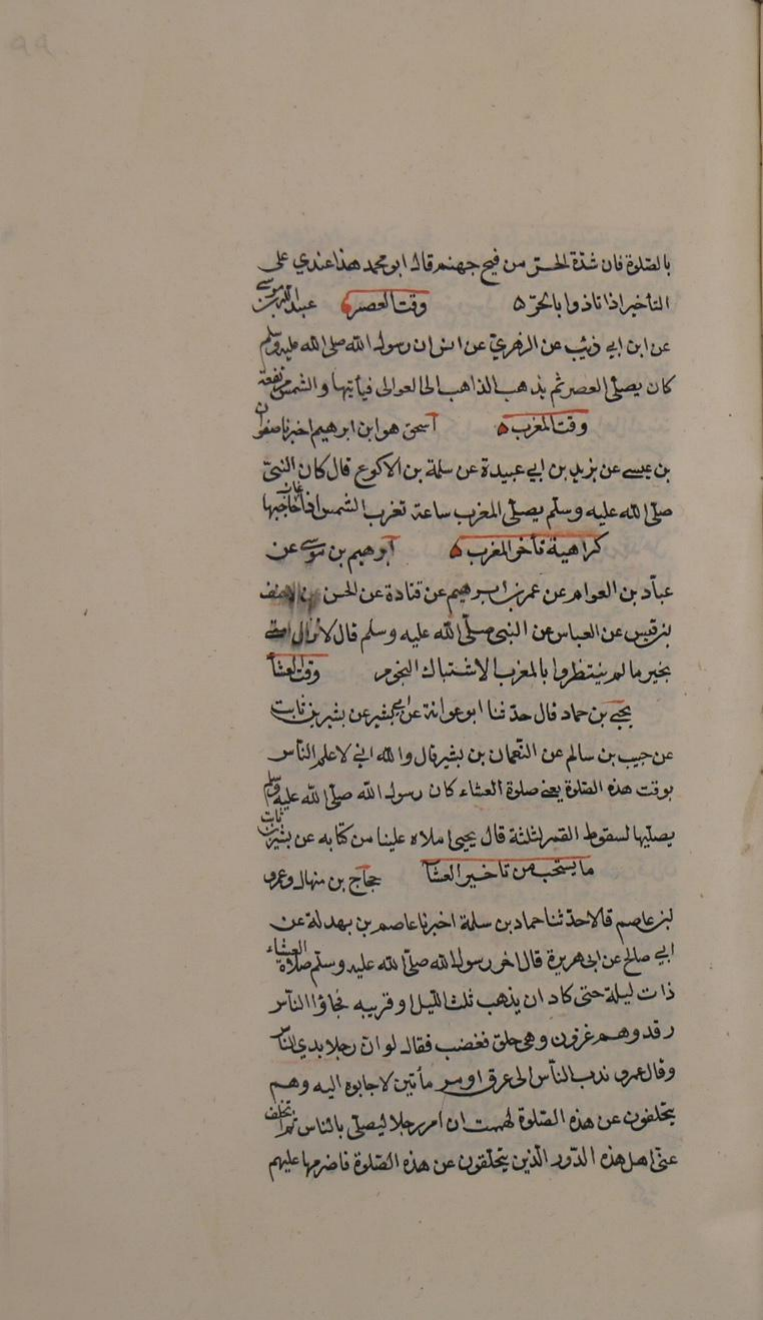 ٩٩
بالصلوة فان شدة الحر من فيح جهنم قال ابو محمد هذا عندي على
التأخير اذا تاذوا بالحر ٥ وقت العصر عبيد الله بن موسى
عن ابن ابي ذئب عن الزهري عن انس ان رسول الله صلى الله عليه وسلم
كان يصلي العصر ثم يذهب الذاهب الى العوالى فيأتيها والشمس مرتفعة
وقت المغرب ٥ اسحق هو ابن ابرهيم اخبرنا صفوان
بن عيسى عن يزيد بن ابي عبيدة عن سلمة بن الاكوع قال كان النبي
صلى الله عليه وسلم يصلي المغرب ساعة تغرب الشمس اذا غاب حاجبها
كراهية تأخر المغرب ٥ ابرهيم بن موسى عن
عباد بن العوام عن عمر بن ابرهيم عن قتادة عن الحسن عن الاحنف
بن قيس عن العباس عن النبي صلى الله عليه وسلم قال لا تزال امتي
بخير ما لم ينتظروا بالمغرب الاشتباك النجوم وقت العشا
يحيى بن حماد قال حدثنا ابو عوانة عن ابي بشير عن بشير بن ثابت
عن حبيب بن سالم عن النعمان بن بشير قال والله اني لاعلم الناس
بوقت هذه الصلوة يعني صلوة العشاء كان رسول الله صلى الله عليه وسلم
يصليها لسقوط القمر لثلثة قال يحيى املاه علينا من كتابه عن بشير بن ثابت
ما يستحب من تاخير العشا حجاج بن منهال وعمرو
بن عاصم قالا حدثنا حماد بن سلمة اخبرنا عاصم بن بهدلة عن
ابي صالح عن ابي هريرة قال اخر رسول الله صلى الله عليه وسلم صلاة العشاء
ذات ليلة حتى كاد ان يذهب ثلث الليل او قريبه فجاؤا الناس
رقد وهم عزون وهي حلق فغضب فقال لو ان رجلا بدي الناس
وقال عمرو ندب الناس الى عرق او مرماتين لاجابوه اليه وهم
يتخلفون عن هذه الصلوة لهممت ان امر رجلا ليصلي بالناس ثم اتخلف
على اهل هذه الدور الذين يتخلفون عن هذه الصلوة فاضرمها عليهم